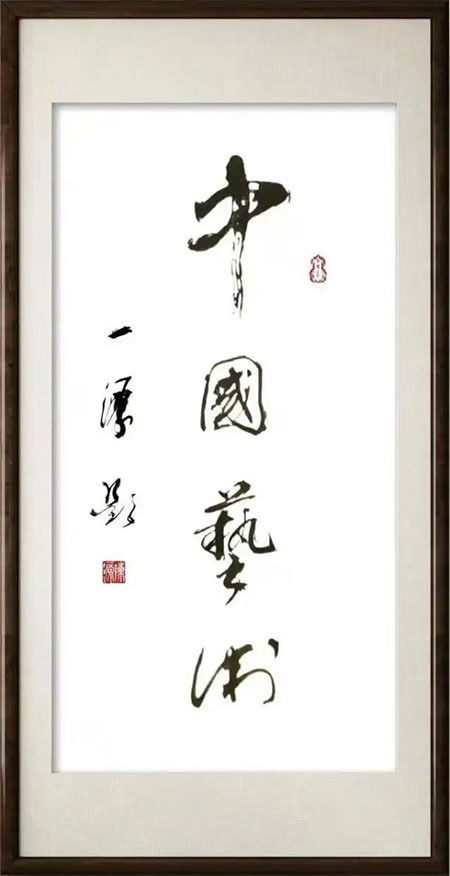 中國藝術
一題